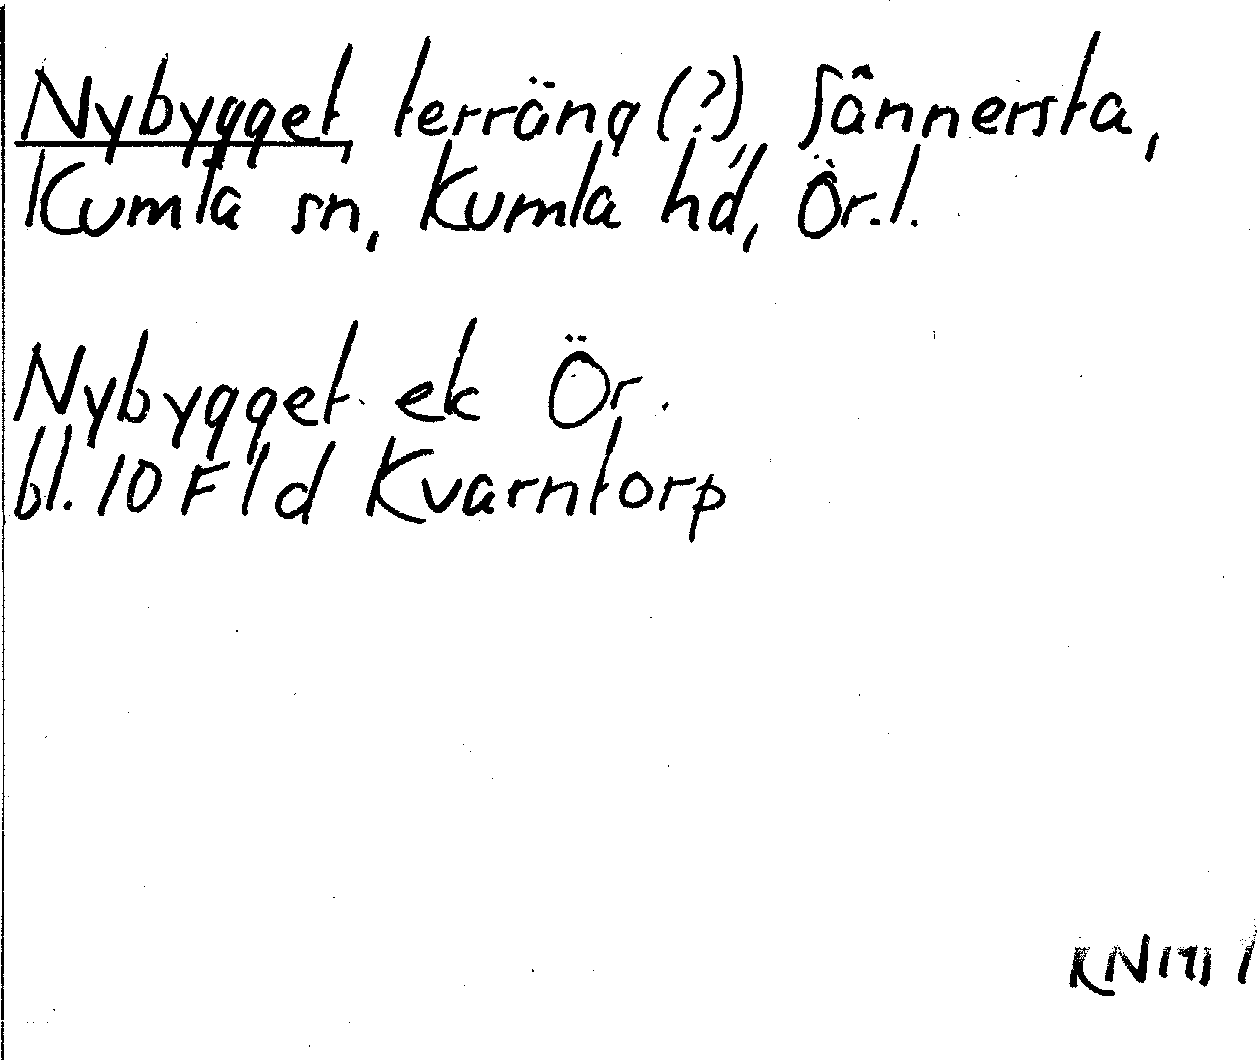 Nybygget, terräng (?), Sånnersta,
Kumla sn, Kumla hd, Ör.l.
Nybygget ek Ör.
bl. 10 F 1 d Kvarntorp